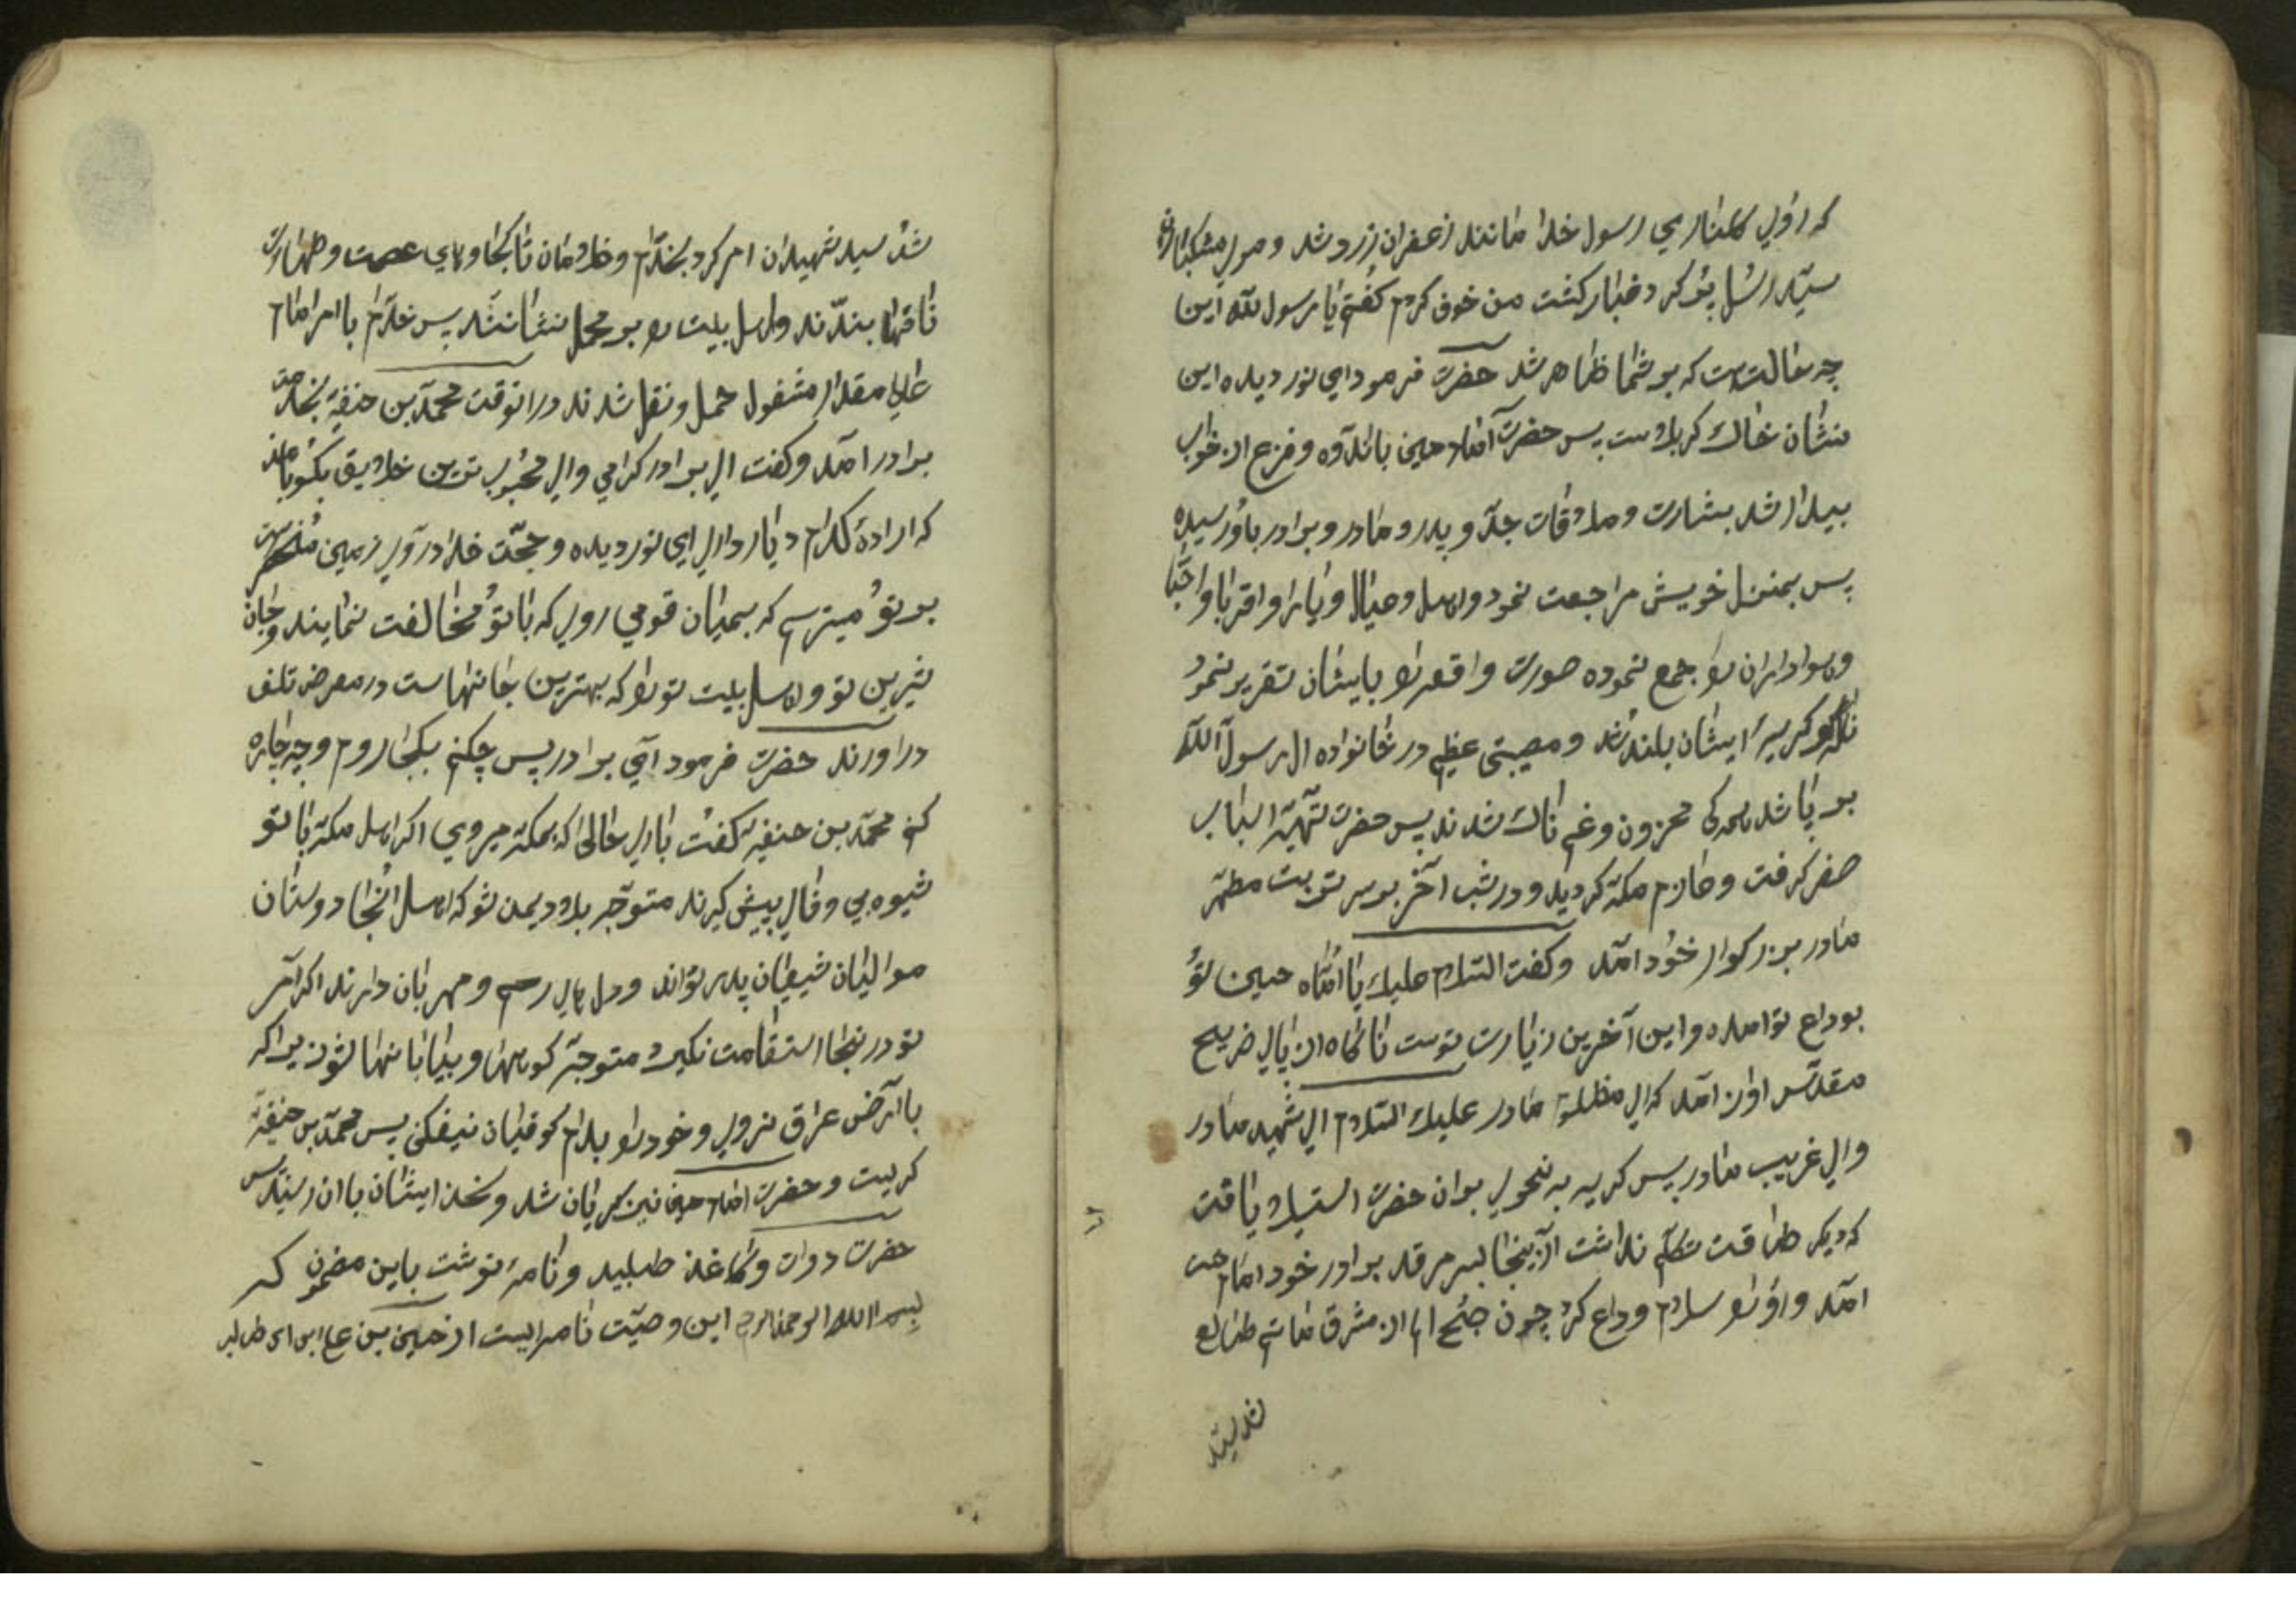 که روی کلناری رسول خدا مانند زعفران زرد شد و موی مشکبار
سیّد رسُل پُر کرد و غبار کشت من خوف کردم کفُتم یا رسول الله این
چه حالتست که بر شما ظاهر شد حضرت فرمود ای نور دیده این
نشان خاک کربلاست پس حضرت امام حسین باندوه و فزع از خواب
بیدار شد بشارت و ملاقات جدّ و پدر و مادر و برادر باو رسیده
پس بمنزل خویش مراجعت نمود و اهل و عیال و یاران و اقربا و احبّا
و هواداران را جمع نموده صورت واقعه را بایشان تقریر نمود
ناله و کریهٔ ایشان بلند شد و مصیبتی عظیم در خانواده ال رسول الله
بر پا شد همه کی محزون و غم ناک شدند پس حضرت تهیّهٔ اسباب
صفر کرفت و عازم مکه کردید و در شب آخر بر سر تربت مطهّر
مادر بزرکوار خود امد و کفت السّلام علیک یا امّاه حسین تؤ
بوداع تو امده و این آخرین زیارت توست ناکاه از بالای ضریح
مقدّس اواز امد که ای مظلوم مادر علیک السّلام ای شهید مادر
وای غریب مادر پس کریه به نحوی بران حضرت استیلا یافت
که دیکر طاقت تکلّم نداشت از اینجا بسر مرقد برادر خود امام حسن
امد و اؤ را سلام وداع کرد چون صُبح از مشرق طالع
شد سیّد
شد سید شهیدان امر کرد بخدّام و غلامان تا کجاوه‌های عصمت و طهارت
ناقها بندّند و اهل بیت را بر محمل نشانند پس خدّام با امر امام
عالی مقدار مشغول حمل و نقل شدند در انوقت محمّد بن حنفیّه بخدمت
برادر امد و کفت ای برادر کرامی وای محبُوب ترین خلایق بکُو با من
که ارادهٔ کدام دیار داری ای نور دیده و حجّت خدا در روی زمین مُنحصر است
بر تؤ میترسم که بمیان قومی روی که با تؤ مخالفت نمایند و جان
شیرین تو و اهل بیت تو را که بهترین جانهاست در معرض تلف
در اورند حضرت فرمود ای برادر پس چکنم بکجا روم و چه چاره
کنم محمّد بن حنفیه کفت بارای حالی که بمکه میروی اکر اهل مکه با تو
شیوه بی وفای پیش کیرند متوجّه بلاد یمن شو که اهل انجا دوستان
موالیان شیعیان پدر تواند و دل های رحم و مهربان دارند اکر امر
تو در انجا استقامت نکیرد متوجّه کوهها و بیابانها شو زیراکه
با ارض عراق نروی و خود را بدام کوفیان نیفکنی پس محمّد بن حنفیّه
کریست و حضرت امام حسین نیز کریان شد و سخن ایشان باان رسید پس
حضرت دوات و کاغذ طلبید و نامهٔ نوشت باین مضمون که
بسم الله الرحمن الرحیم این وصیّت نامه ایست از حسین بن علی ابن ابی طالب